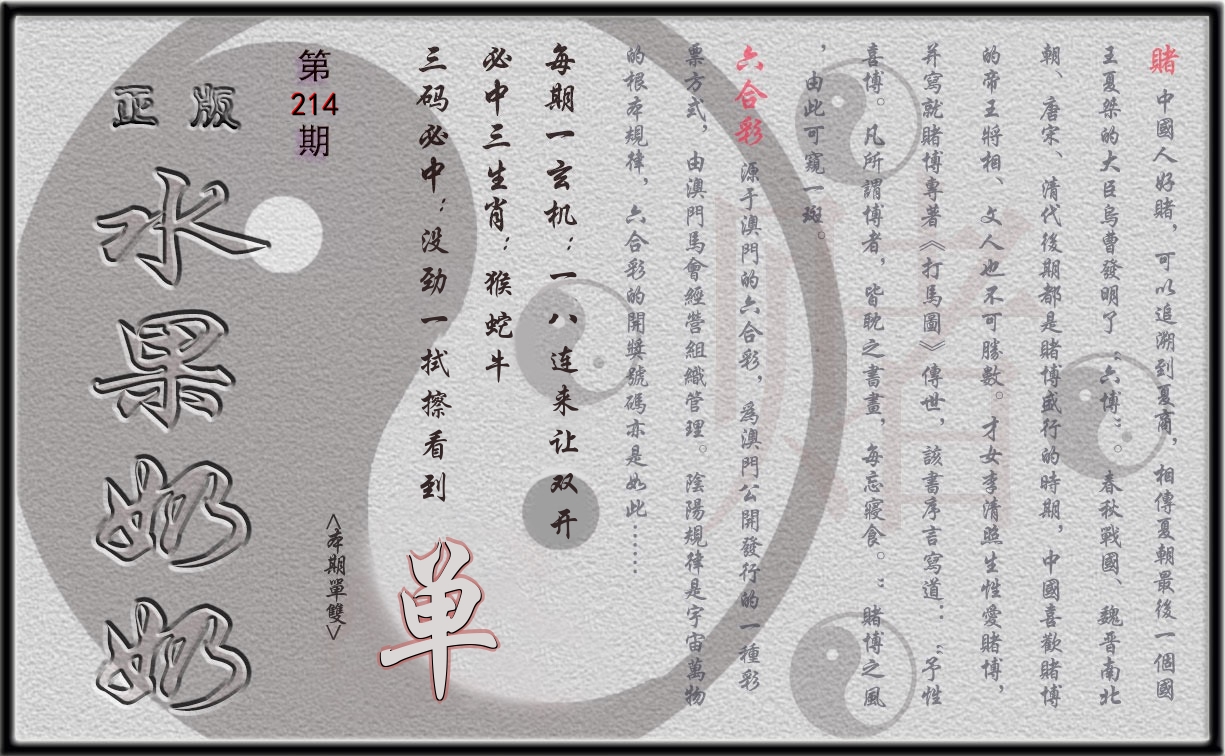 賭 中國人好賭，可以追溯到夏商，相傳夏朝最後一個國
王夏桀的大臣烏曹發明了“六博”。春秋戰國、魏晋南北
朝、唐宋、清代後期都是賭博盛行的時期，中國喜歡賭博
的帝王將相、文人也不可勝數。才女李清照生性愛賭博，
并寫就賭博專著《打馬圖》傳世，該書序言寫道：“予性
喜博。凡所謂博者，皆耽之書晝，每忘寢食。”賭博之風
，由此可窺一斑。
六合彩 源于澳門的六合彩，爲澳門公開發行的一種彩
票方式，由澳門馬會經營組織管理。陰陽規律是宇宙萬物
的根本規律，六合彩的開獎號碼亦是如此……
每期一玄机：一八连来让双开
必中三生肖：猴蛇牛
三码必中：没劲一拭擦看到
单
<本期單雙>
第
214
期
正版
水果奶奶
赌